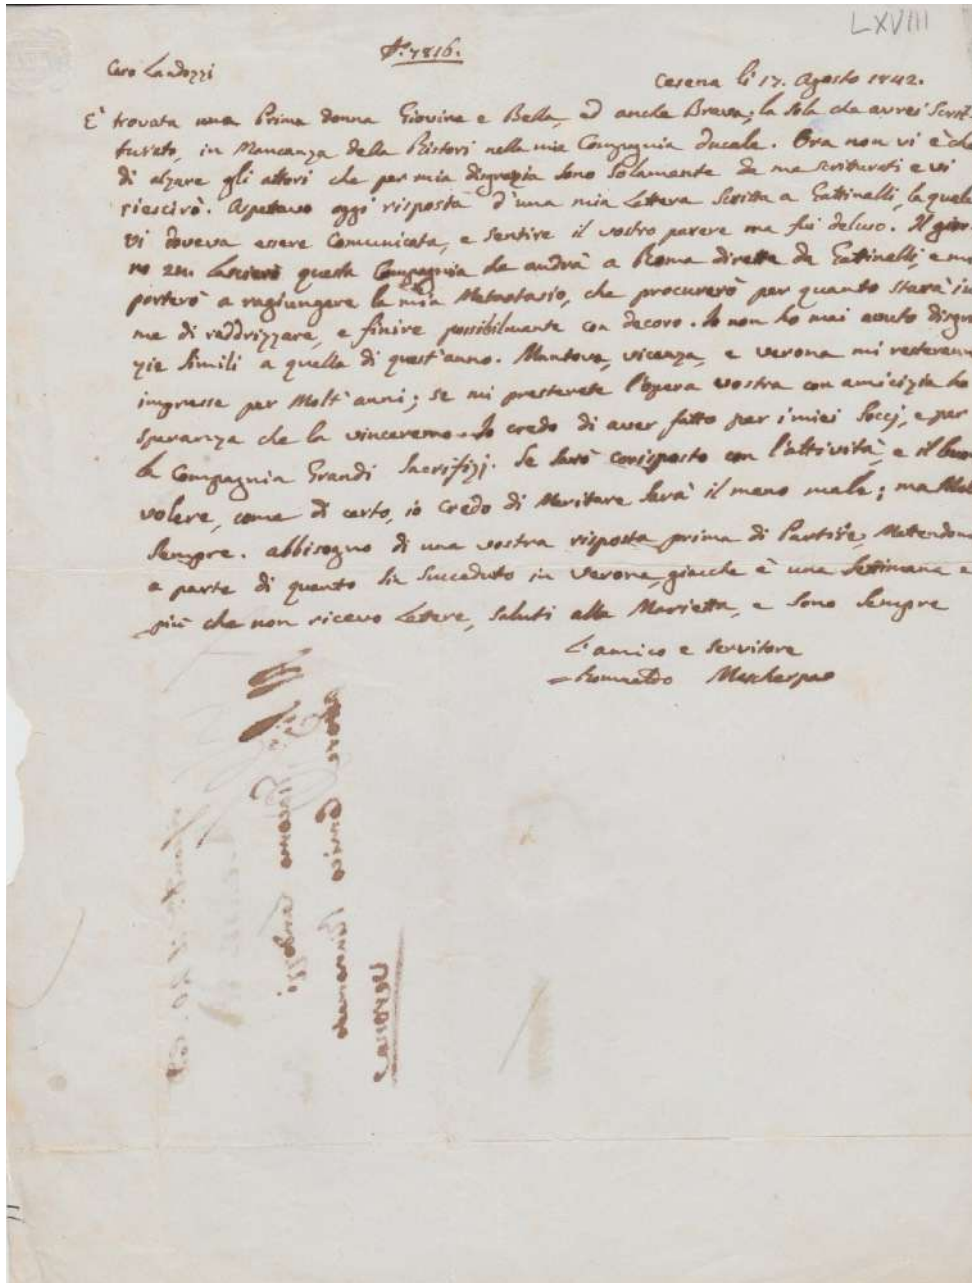 LXVIII
N.° 7816.
Caro Landozzi
Cesena li 17. Agosto 1842.
E' trovata una Prima donna Giovine e Bella, ed anche Brava; la sola che avrei Scrit-
turato, in Mancanza della Ristori nella mia Compagnia ducale. Ora non vi è che
di alzare gli attori che per mia disgrazia sono Solamente da me scriturati e vi
riescirò. Aspetavo oggi risposta d'una mia Lettera Scritta a Gattinelli, la quale
vi doveva essere Comunicata, e Sentire il vostro parere ma fui deluso. Il gior-
no 2 Lascierò questa Compagnia che andrà a Roma diretta da Gattinelli, e mi
porterò a ragiungere la mia Metastasio, che procurerò per quanto starà in
me di raddrizzare, e finire possibilmente con decoro. Io non ho mai avuto disgra-
zie Simili a quella di quest'anno. Mantova, vicenza, e verona mi resteranno
impresse per Molt'anni; se mi presterete l'opera vostra con amicizia ho
Speranza che la vinceremo. Io credo di aver fatto per i miei Soccj, e per
la Compagnia Grandi Sacrifizj. Se Sarò corisposto con l'attività, e il buon
volere, come di certo, io Credo di Meritare Sarà il meno male; ma
Sempre. abbisogno di una vostra risposta prima di Partire, Metendomi
a parte di quanto Sia Succeduto in Verona, giacche è una Settimana e
più che non ricevo Lettere, Saluti alla Marietta, e Sono Sempre
L'amico e Servitore
Romualdo Mascherpa
Giacomo Landozzi
Verona